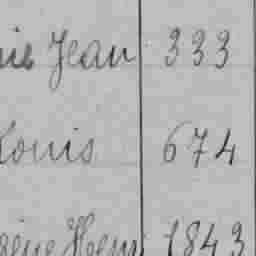 Jean 333
Louis 674
Henri 1843